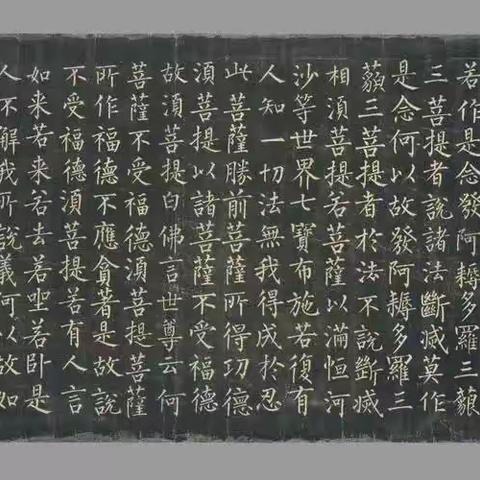 若作是念發阿耨多羅三藐
三菩提者說諸法斷滅莫作
是念何以故發阿耨多羅三
藐三菩提者於法不說斷滅
相須菩提若菩薩以滿恒河
沙等世界七寶布施若復有
人知一切法無我得成於忍
此菩薩勝前菩薩所得功德
須菩提以諸菩薩不受福德
故須菩提白佛言世尊云何
菩薩不受福德須菩提菩薩
所作福德不應貪著是故說
不受福德須菩提若有人言
如来若来若去若坐若卧是
人不解我所說義何以故如